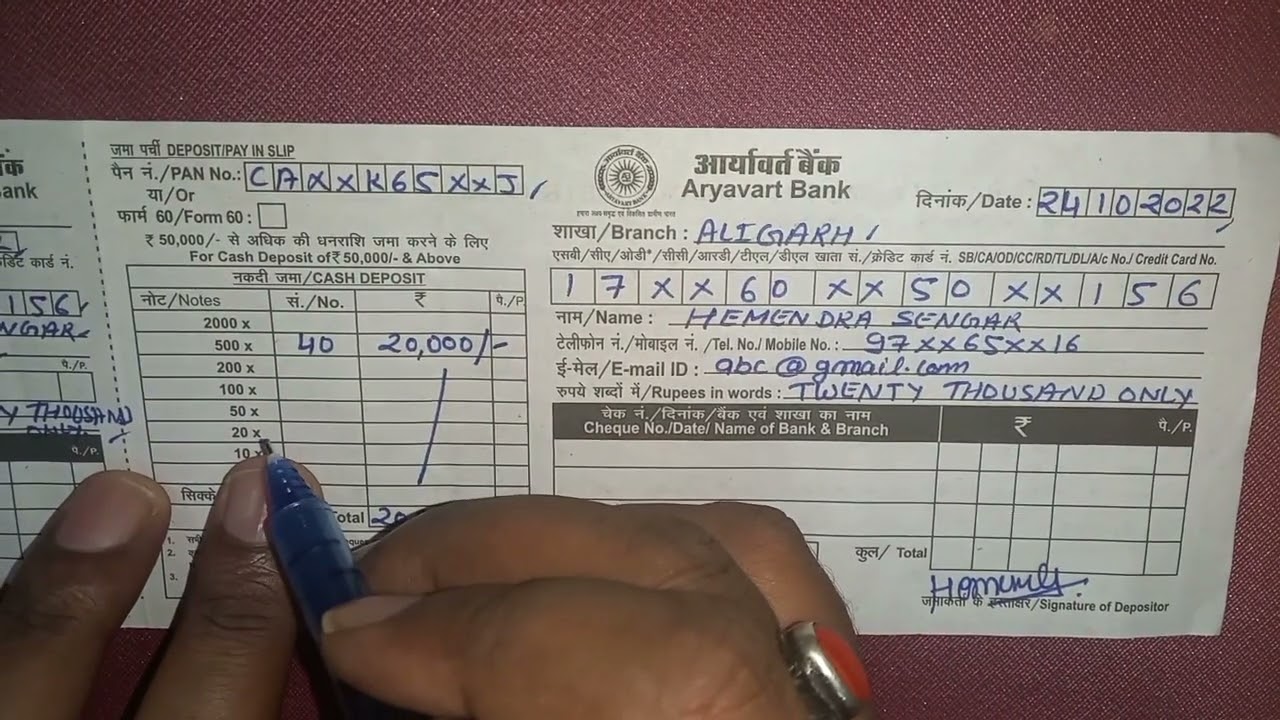 जमा पर्ची DEPOSIT/PAY IN SLIP
पैन नं./PAN No.: CAXXK65XXJ
या/Or
फार्म 60/Form 60 :
₹ 50,000/- से अधिक की धनराशि जमा करने के लिए
For Cash Deposit of ₹ 50,000/- & Above
नकदी जमा/CASH DEPOSIT
नोट/Notes सं./No. ₹ पै./P.
2000 x
500 x 40 20,000/-
200 x
100 x
50 x
20 x
10 x
सिक्के
Total 20
1.
2.
3.
आर्यावर्त बैंक
Aryavart Bank
दिनांक/Date : 24102022
शाखा/Branch : ALIGARH
एसबी/सीए/ओडी*/सीसी/आरडी/टीएल/डीएल खाता सं./क्रेडिट कार्ड नं. SB/CA/OD/CC/RD/TL/DL/A/c No./ Credit Card No.
17XX60XX50XX156
नाम/Name : HEMENDRA SENGAR
टेलीफोन नं./मोबाइल नं. /Tel. No./ Mobile No. : 97XX65XX16
ई-मेल/E-mail ID : abc@gmail.com
रुपये शब्दों में/Rupees in words : TWENTY THOUSAND ONLY
चेक नं./दिनांक/बैंक एवं शाखा का नाम ₹ पै./P.
Cheque No./Date/ Name of Bank & Branch
कुल/ Total
जमाकर्ता के हस्ताक्षर/Signature of Depositor
ank
डिट कार्ड नं.
156
NGAR
पै./P.
Y THOUSAND
ONLY
पै./P.